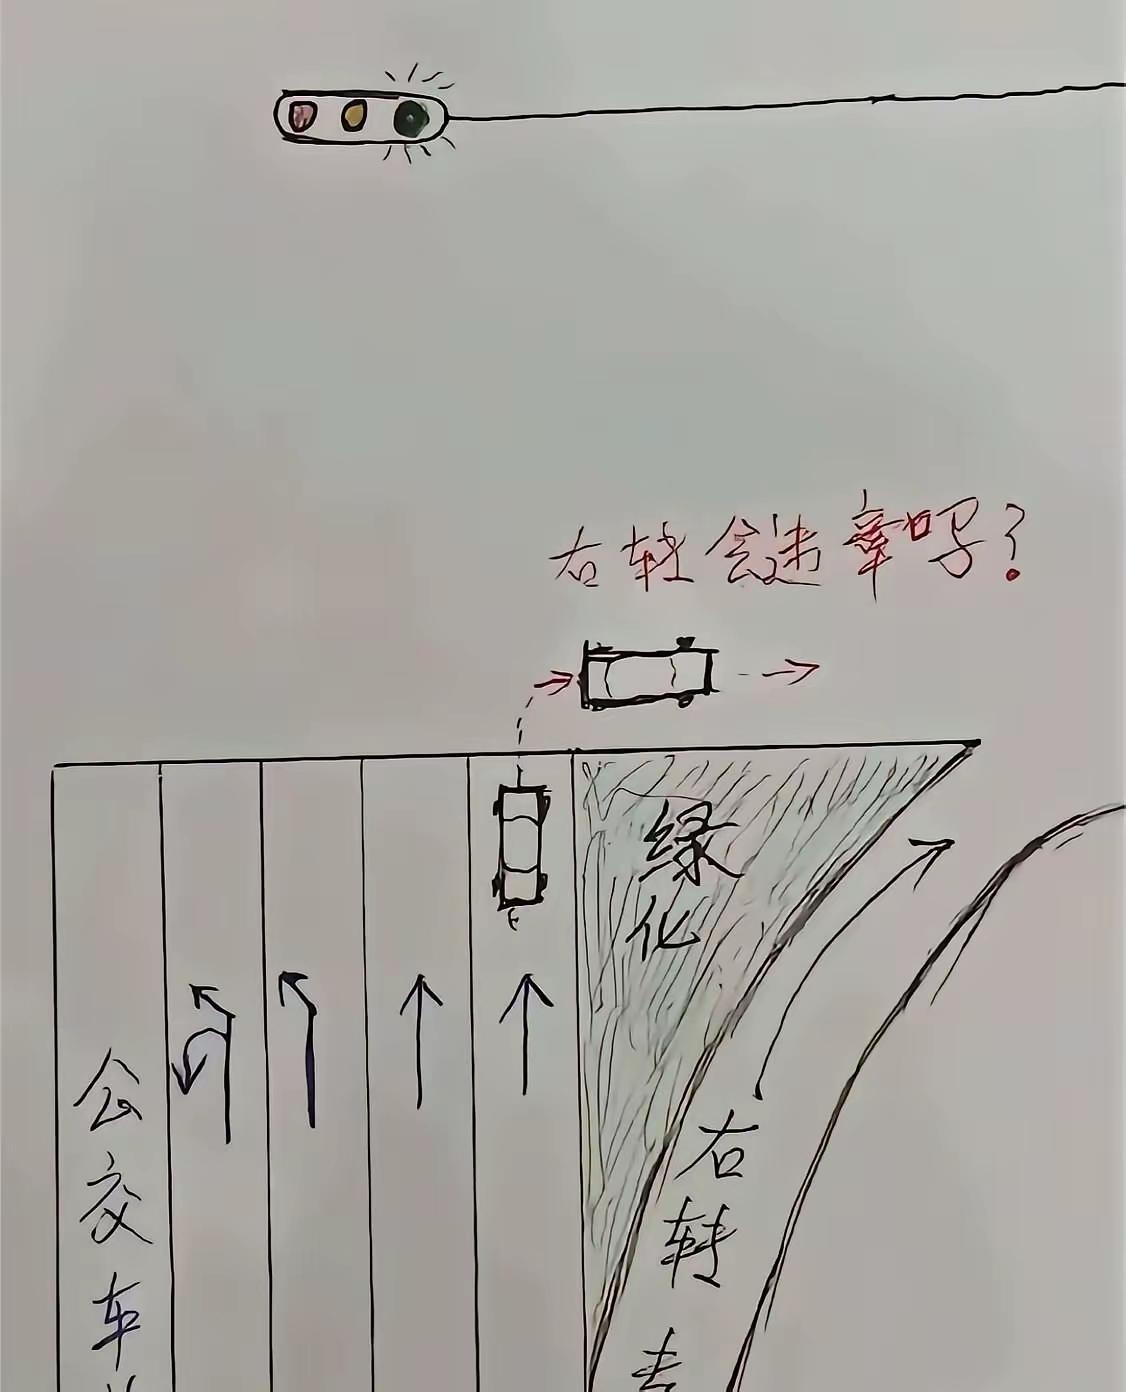 右转会违章吗?
绿
化
公
交
车
右
转